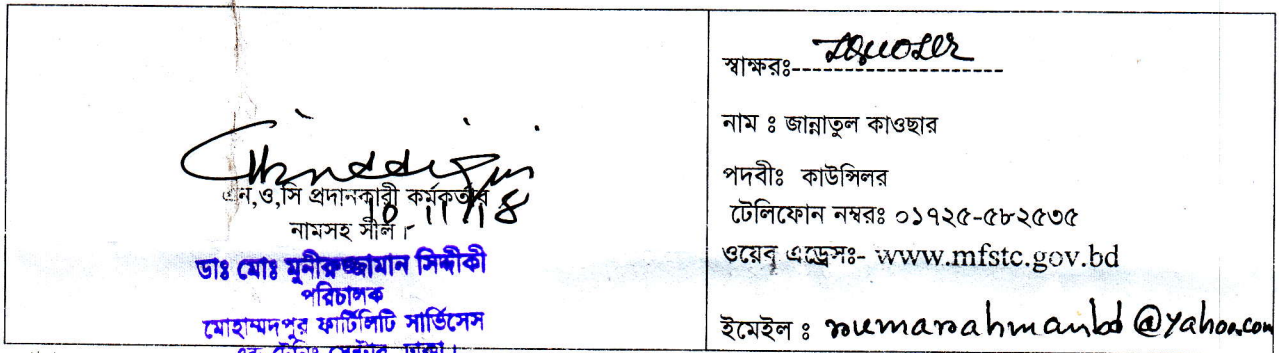 এন,ও,সি প্রদানকারী কর্মকর্তার
10.11.18
নামসহ সীল।
ডাঃ মোঃ মুনীরুজ্জামান সিদ্দীকী
পরিচালক
মোহাম্মদপুর ফার্টিলিটি সার্ভিসেস
এন্ড ট্রেনিং সেন্টার, ঢাকা।
স্বাক্ষরঃ
নাম ঃ জান্নাতুল কাওছার
পদবীঃ কাউন্সিলর
টেলিফোন নম্বরঃ ০১৭২৫-৫৮২৫৩৫
ওয়েব এড্রেসঃ- www.mfstc.gov.bd
ইমেইল ঃ numarahmanbd@yahoo.com